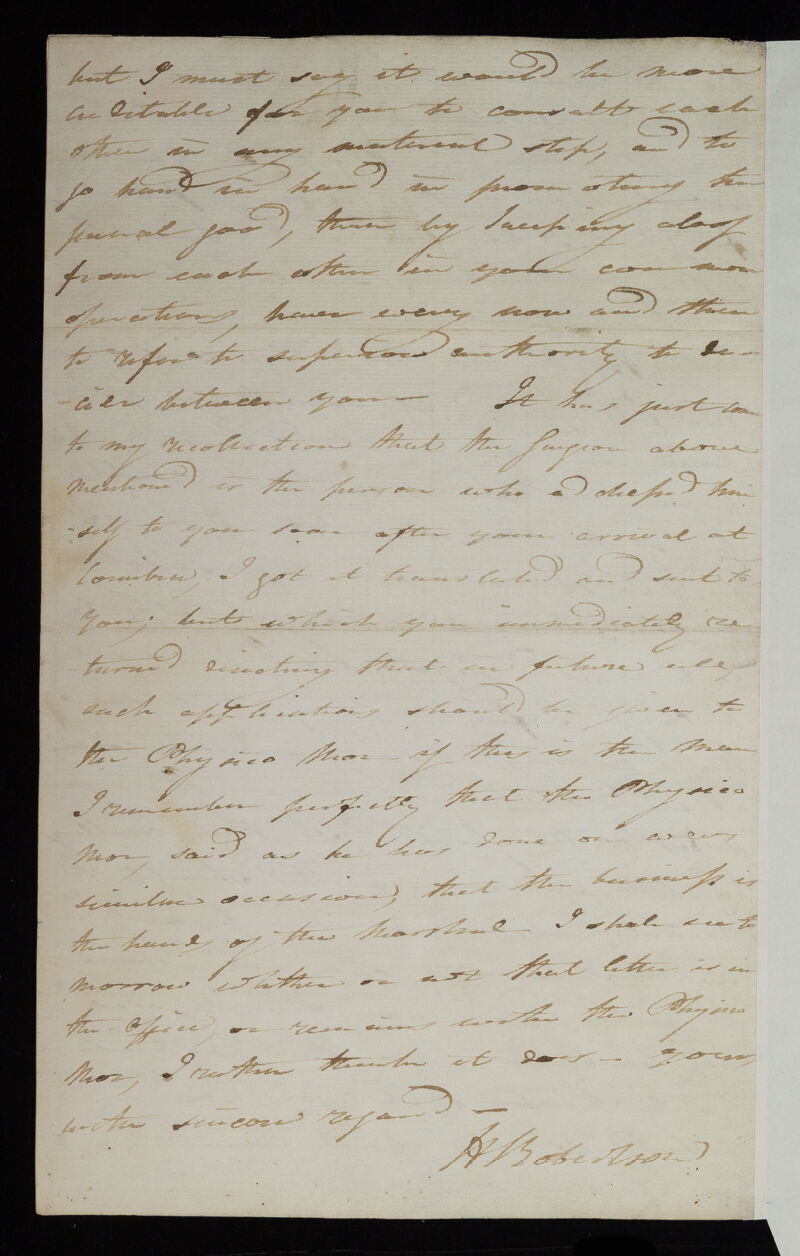 but I must say it would be more
creditable for you to consult each
other in any material step, and to
go hand in hand in promoting the
general good, than by keeping aloof
from each other in your common
operations, have every now and then
to refer to superior authority to de-
-cide between you — It has just come
to my recollection that the Surgeon above
mentioned is the person who addressed him
-self to you soon after your arrival at
Coimbra, I got it translated and sent to
You; but which you immediately re
-turned directing that in future all
such applications should be given to
the Physico Mor if this is the man
I remember perfectly that the Physico
Mor, said as he has done on every
similar occasion, that the business is
the hands of the Marshal I shall see to
morrow whether or not that letter is in
the office, or remains with the Physico
Mor, I rather think it does — yours,
with sincere regard —
H Robertson